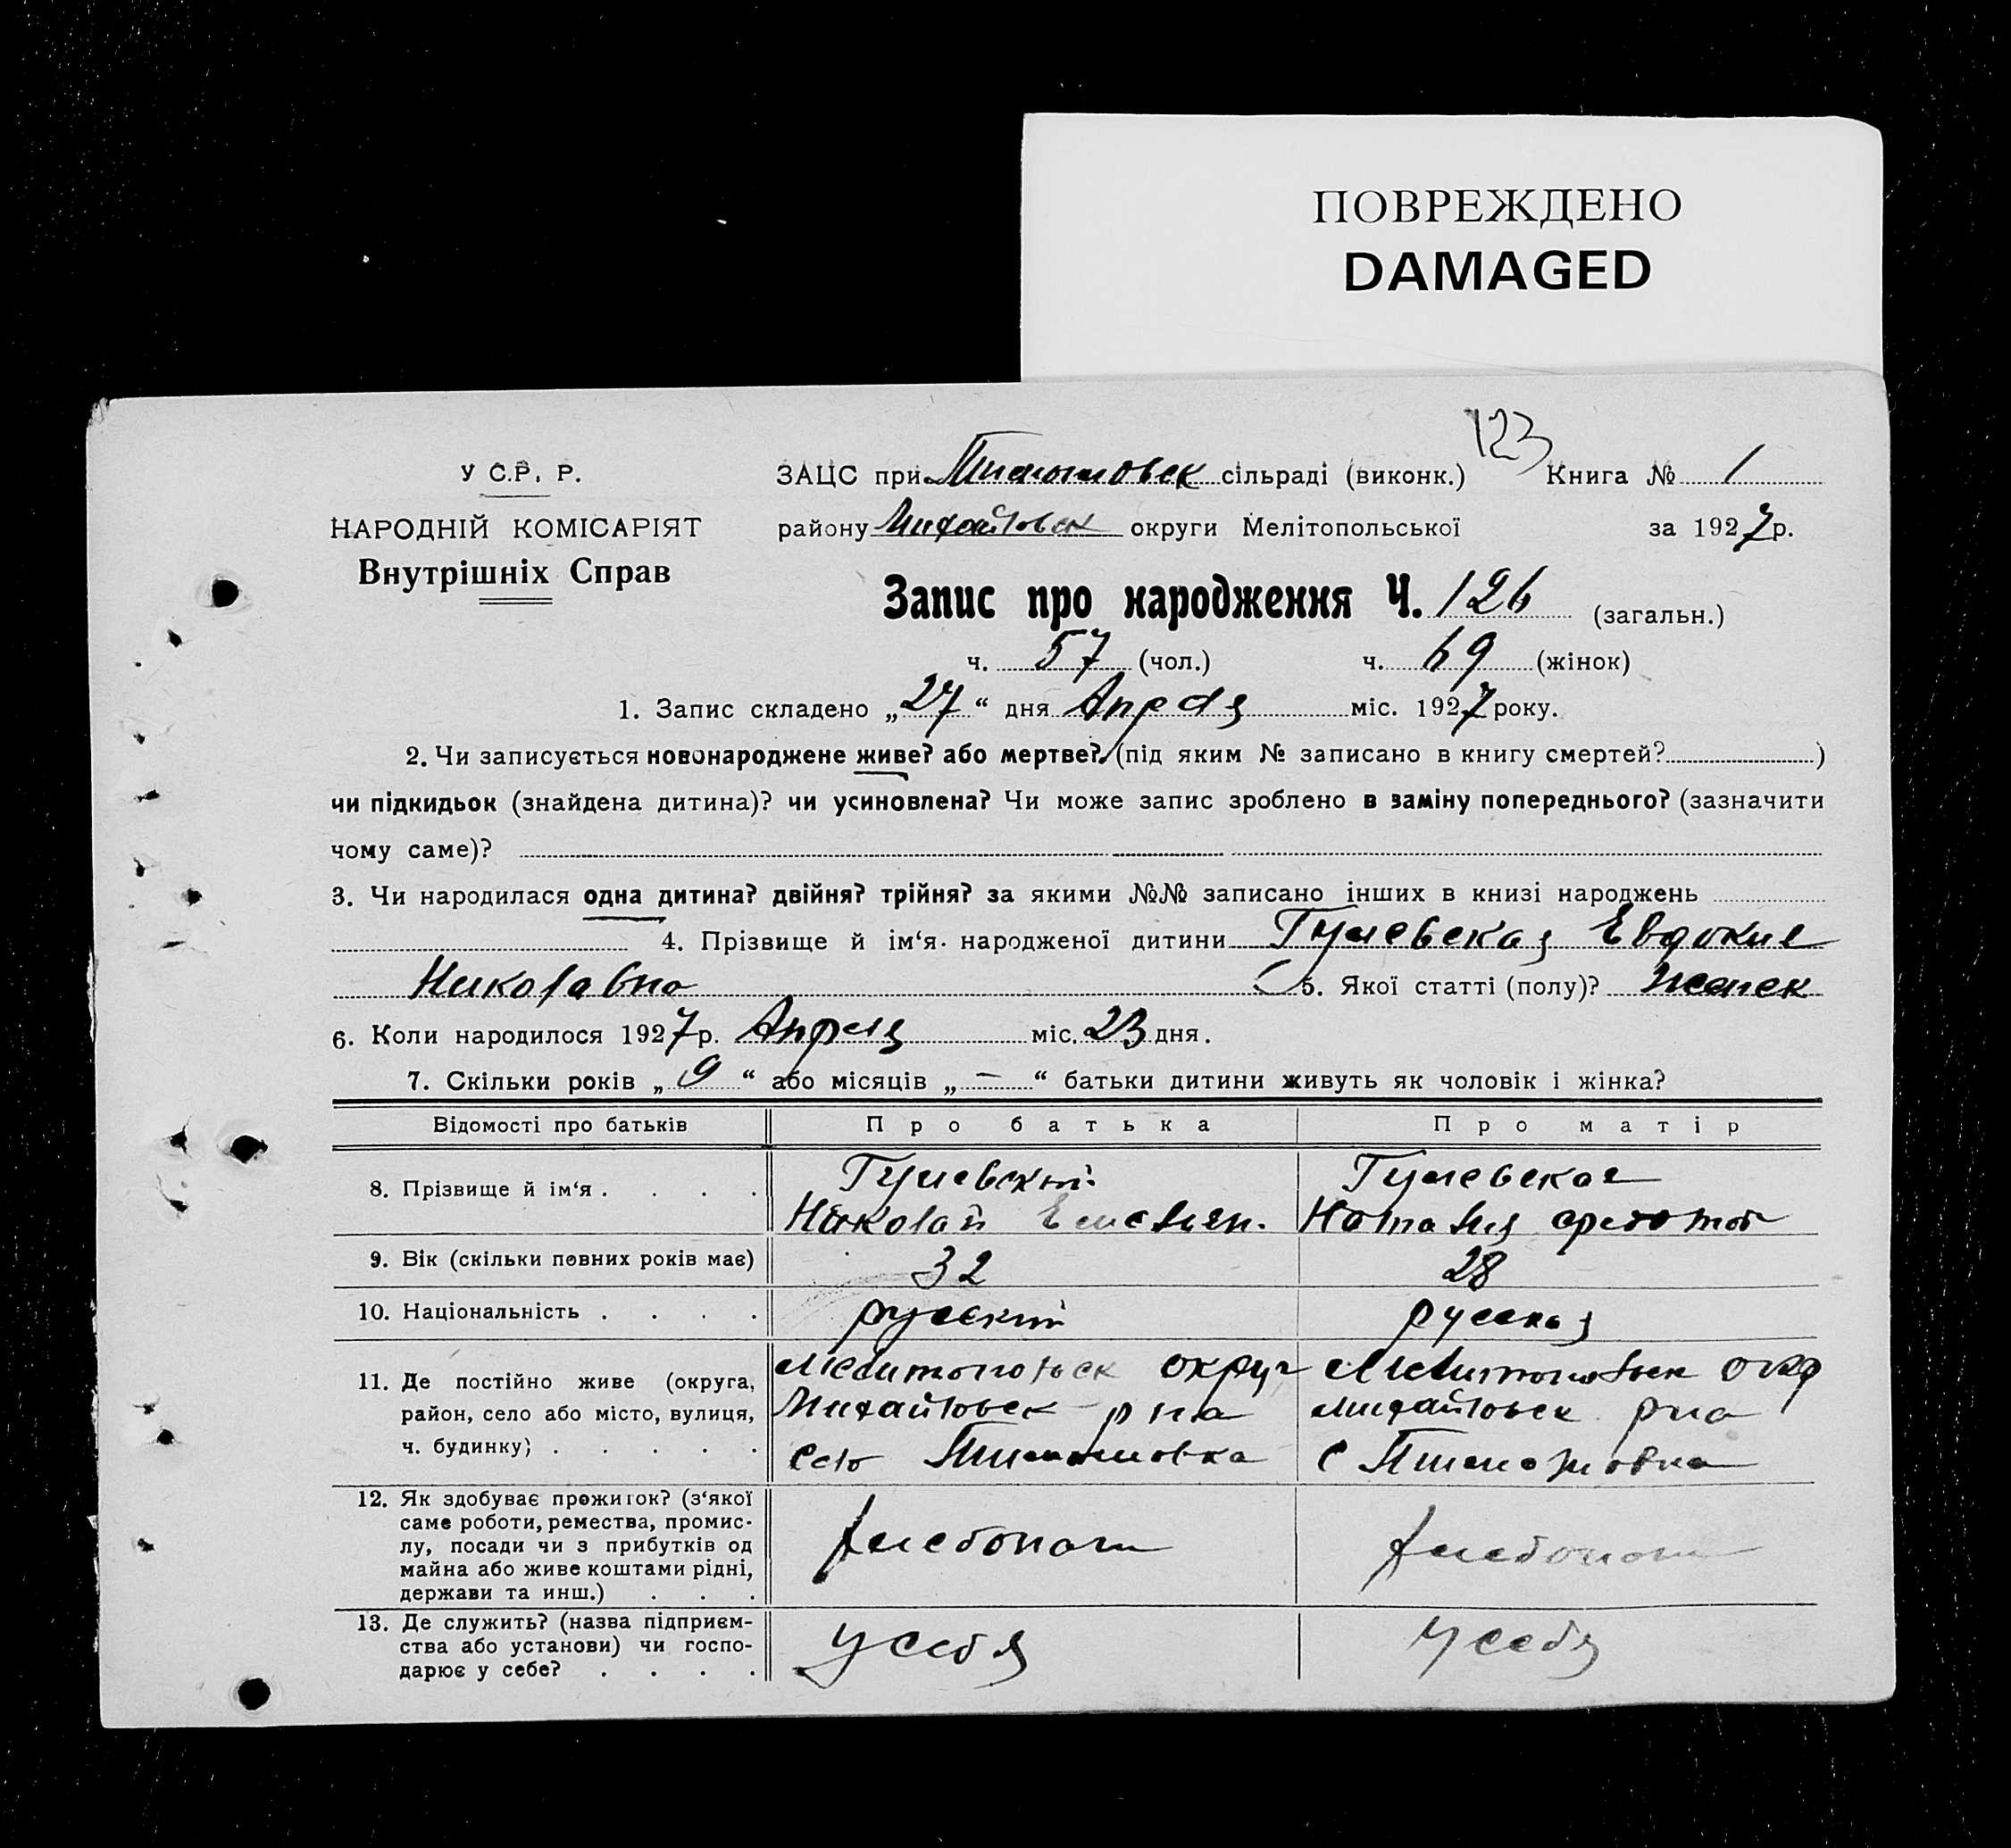 ПОВРЕЖДЕНО
DAMAGED
123
У С.Р. Р.
ЗАЦС при сільраді (виконк.) Книга № 1
НАРОДНІЙ КОМІСАРІЯТ
району Михайловск округи Мелітопольської за 1927 р.
Внутрішніх Справ
Запис про народження Ч. 126 (загальн.)
ч. 57 (чол.) ч. 69 (жінок)
1. Запис складено „27“ дня Апреля міс. 1927 року.
2. Чи записується новонароджене живе? або мертве? (під яким № записано в книгу смертей? )
чи підкидьок (знайдена дитина)? чи усиновлена? Чи може запис зроблено в заміну попереднього? (зазначити
чому саме)?
3. Чи народилася одна дитина? двійня? трійня? за якими №№ записано інших в книзі народжень
4. Прізвище й ім‘я народженої дитини Евдокия
Николавна 5. Якої статті (полу)? женск
6. Коли народилося 1927 р. Апреля міс. 23 дня.
7. Скільки років „9“ або місяців „–“ батьки дитини живуть як чоловік і жінка?
Відомості про батьків Про батька Про матір
8. Прізвище й ім‘я
Николай Емельян. Наталия
9. Вік (скільки повних років має) 32 28
10. Національність русский русская
11. Де постійно живе (округа, район, село або місто, вулиця, ч. будинку)
Мелитопольск округ Мелитопольск окр
Михайловск рна Михайловск рна
село с
12. Як здобуває прожиток? (з‘якої саме роботи, ремества, промислу, посади чи з прибутків од майна або живе коштами рідні, держави та инш.)
хлебопаш хлебопаш
13. Де служить? (назва підприємства або установи) чи господарює у себе?
у себя у себя